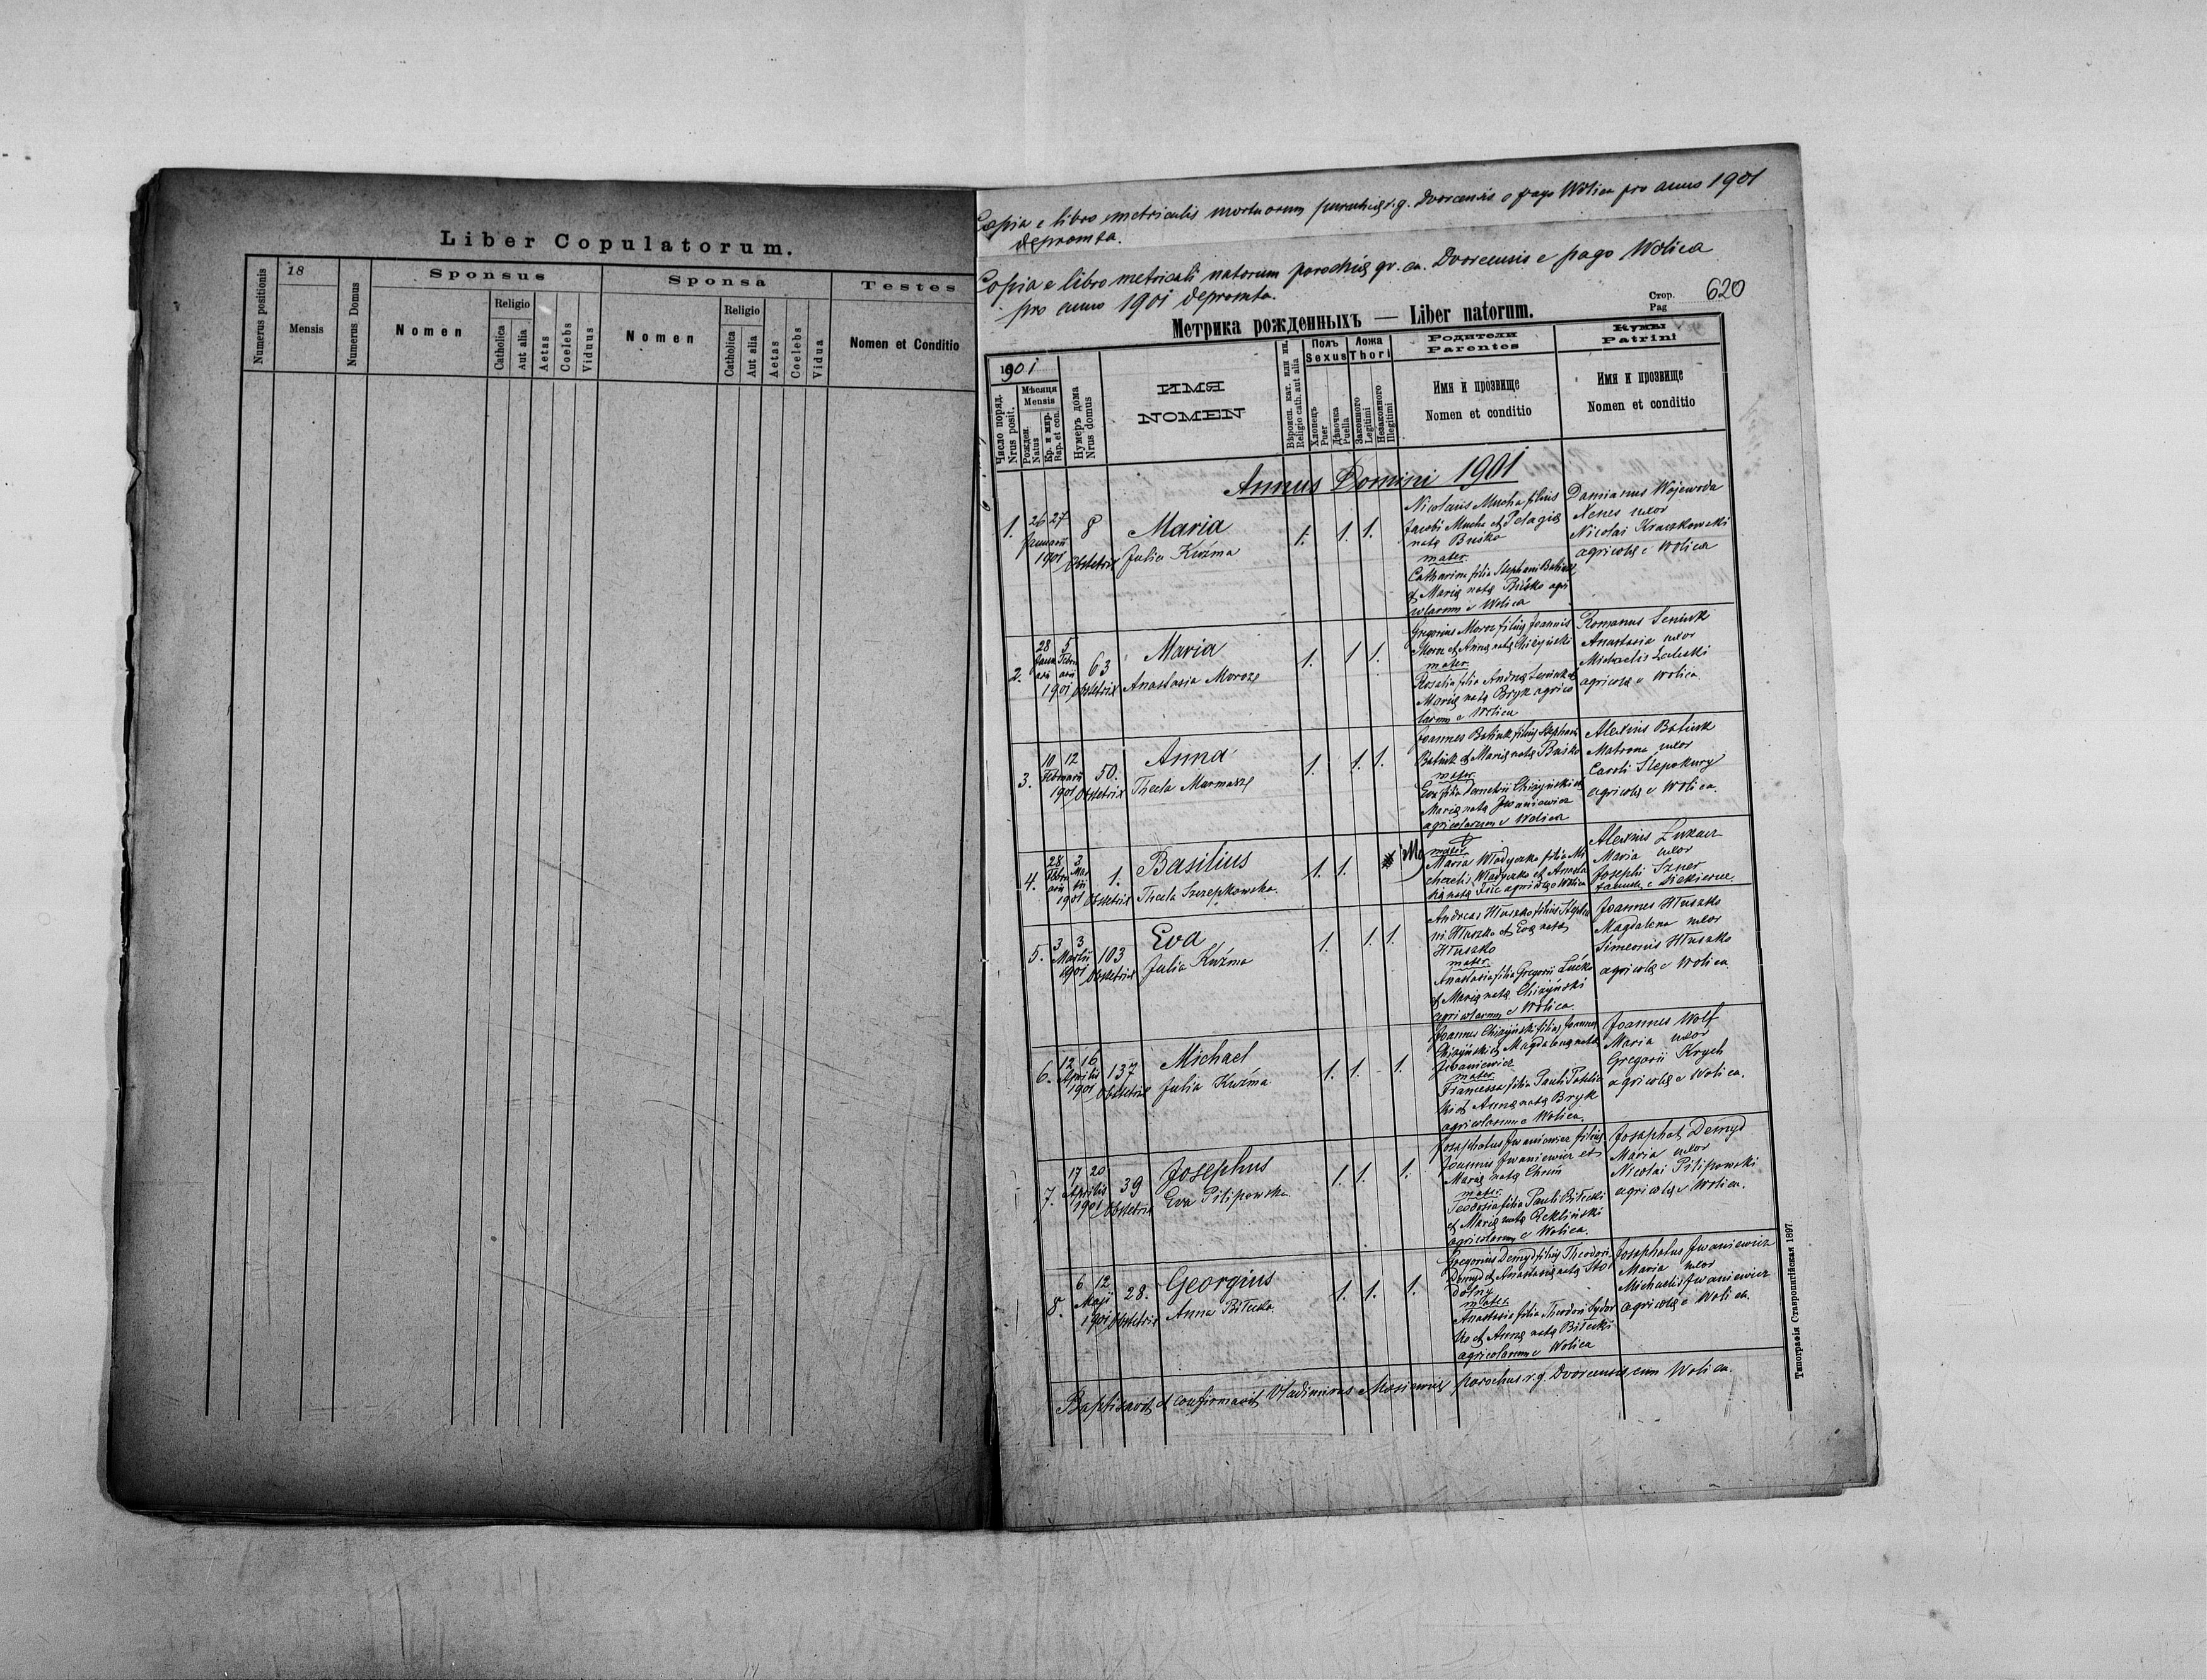 Liber Copulatorum.
Numerus positionis
18
Mensis
Numerus Domus
Sponsus
Nomen
Religio
Catholica
Aut alia
Aetas
Coelebs
Viduus
Sponsa
Nomen
Religio
Catholica
Aut alia
Aetas
Coelebs
Vidua
Testes
Nomen et Conditio
Copia e libro metricalis mortuorum r. g. Dvorcensis e pago Wolica pro anno 1901
depromta.
Copia e libro metricali natorum parochię gr. ca. Dvorcensis e pago Wolica
pro anno 1901 depromta.
Стор.
Pag
620
Метрика рожденныхъ — Liber natorum.
1901
Число поряд.
Nrus posit.
Мѣсяця
Mensis
Рожден.
Natus
Кр. и мир.
Bap. et con.
Нумеръ дома
Nrus domus
ИМЯ
NOMEN
Вѣроисп. кат. или ин.
Religio cath. aut alia
Полъ
Sexus
Хлопецъ
Puer
Дѣвочка
Puella
Ложа
Thori
Законного
Legitimi
Незаконного
Illegitimi
Родители
Parentes
Имя и прозвище
Nomen et conditio
Кумы
Patrini
Имя и прозвище
Nomen et conditio
Annus Domini 1901
1.
26 27
Januarii
1901
8
Obstetrix
Maria
Julia Kuźma
1. 1. 1.
Nicolaus Mucha filius
Jacobi Mucha et Pelagię
natę Buśko
mater
Catharina filia Stephani Batiuk
et Marię natę Buśko agri
colarum e Wolica
Damianus Wojewoda
Xenes uxor
Nicolai Kraczkowski
agricolę e Wolica
2.
28 5
Janu Febru
arii arii
1901
63
Obstetrix
Maria
Anastasia Moroze
1. 1 1.
Gregorius Moroz filius Joannis
Moroz et Annę natę Chizyński
mater
Rosalia filia Andreę Seniuk et
Marię natę Bryk agrico
larum e Wolica
Romanus Seniuk
Anastasia uxor
Michaelis Zaleski
agricolę e Wolica
3.
10 12
Februarii
1901
50.
Obstetrix
Anna
Thecla
1. 1. 1.
Joannes Batiuk filius Stephani
Batiuk et Marię natę Buśko
mater
Eva filia Demetrii Chizyński et
Marię natę Iwaniewicz
agricolarum e Wolica
Alexius Batiuk
Matrona uxor
Caroli Slepokury
agricolę e Wolica.
4.
28 3
Febru Mar
arii tii
1901
1.
Obstetrix
Basilius
Thecla Szczepkowska.
1. 1.
mater
Maria Władyczko filia Mi
chaelis Władyczko et Anasta
Alexius
Maria uxor
Josephi Szner
5.
3 3
Martii
1901
103
Obstetrix
Eva
Julia Kuźma
1. 1. 1.
Andreas Hłuszko filius Stepha
ni Hłuszko et Evę natę
Hłuszko
mater
Anastasia filia Gregorii Lućko
et Marię natę Chizyński
agricolarum e Wolica
Joannes Hłuszko
Magdalena uxor
Simeonis Hłuszko
agricolę e Wolica.
6.
12 16
Aprilis
1901
137
Obstetrix
Michael
Julia Kuźma
1. 1. 1.
Joannes Chizyński filius Joannis
Chizyński et Magdalenę natę
Iwaniewicz
mater
Francesca filia Pauli
ki et Annę natę Bryk
agricolarum e Wolica.
Joannes Wolf
Maria uxor
Gregorii Krych
agricolę e Wolica.
7.
17 20
Aprilis
1901
39
Obstetrix
Josephus
Eva Pilipowska
1. 1. 1.
Josaphatus Iwaniewicz filius
Joannis Iwaniewicz et
Marię natę Chruń
mater
Teodosia filia Pauli Biłecki
et Marię natę Rekliński
agricolarum e Wolica.
Josaphat Demyd
Maria uxor
Nicolai Pilipowski
agricolę e Wolica.
8.
6 12
Maji
1901
28.
Obstetrix
Georgius
Anna Biłecka
1. 1. 1.
Gregorius Demyd filius Theodori
Demyd et Anastasię natę Sto
dolny
mater
Anastasia filia Theodori Sydor
ko et Annę natę Biłecki
agricolarum e Wolica
Josaphatus Iwaniewicz
Maria uxor
Michaelis Iwaniewicz
agricolę e Wolica.
Baptisavit et confirmavit Vladimirus parochus r. g. Dvorcensis cum Wolica.
Типографія Ставропигійская 1897.